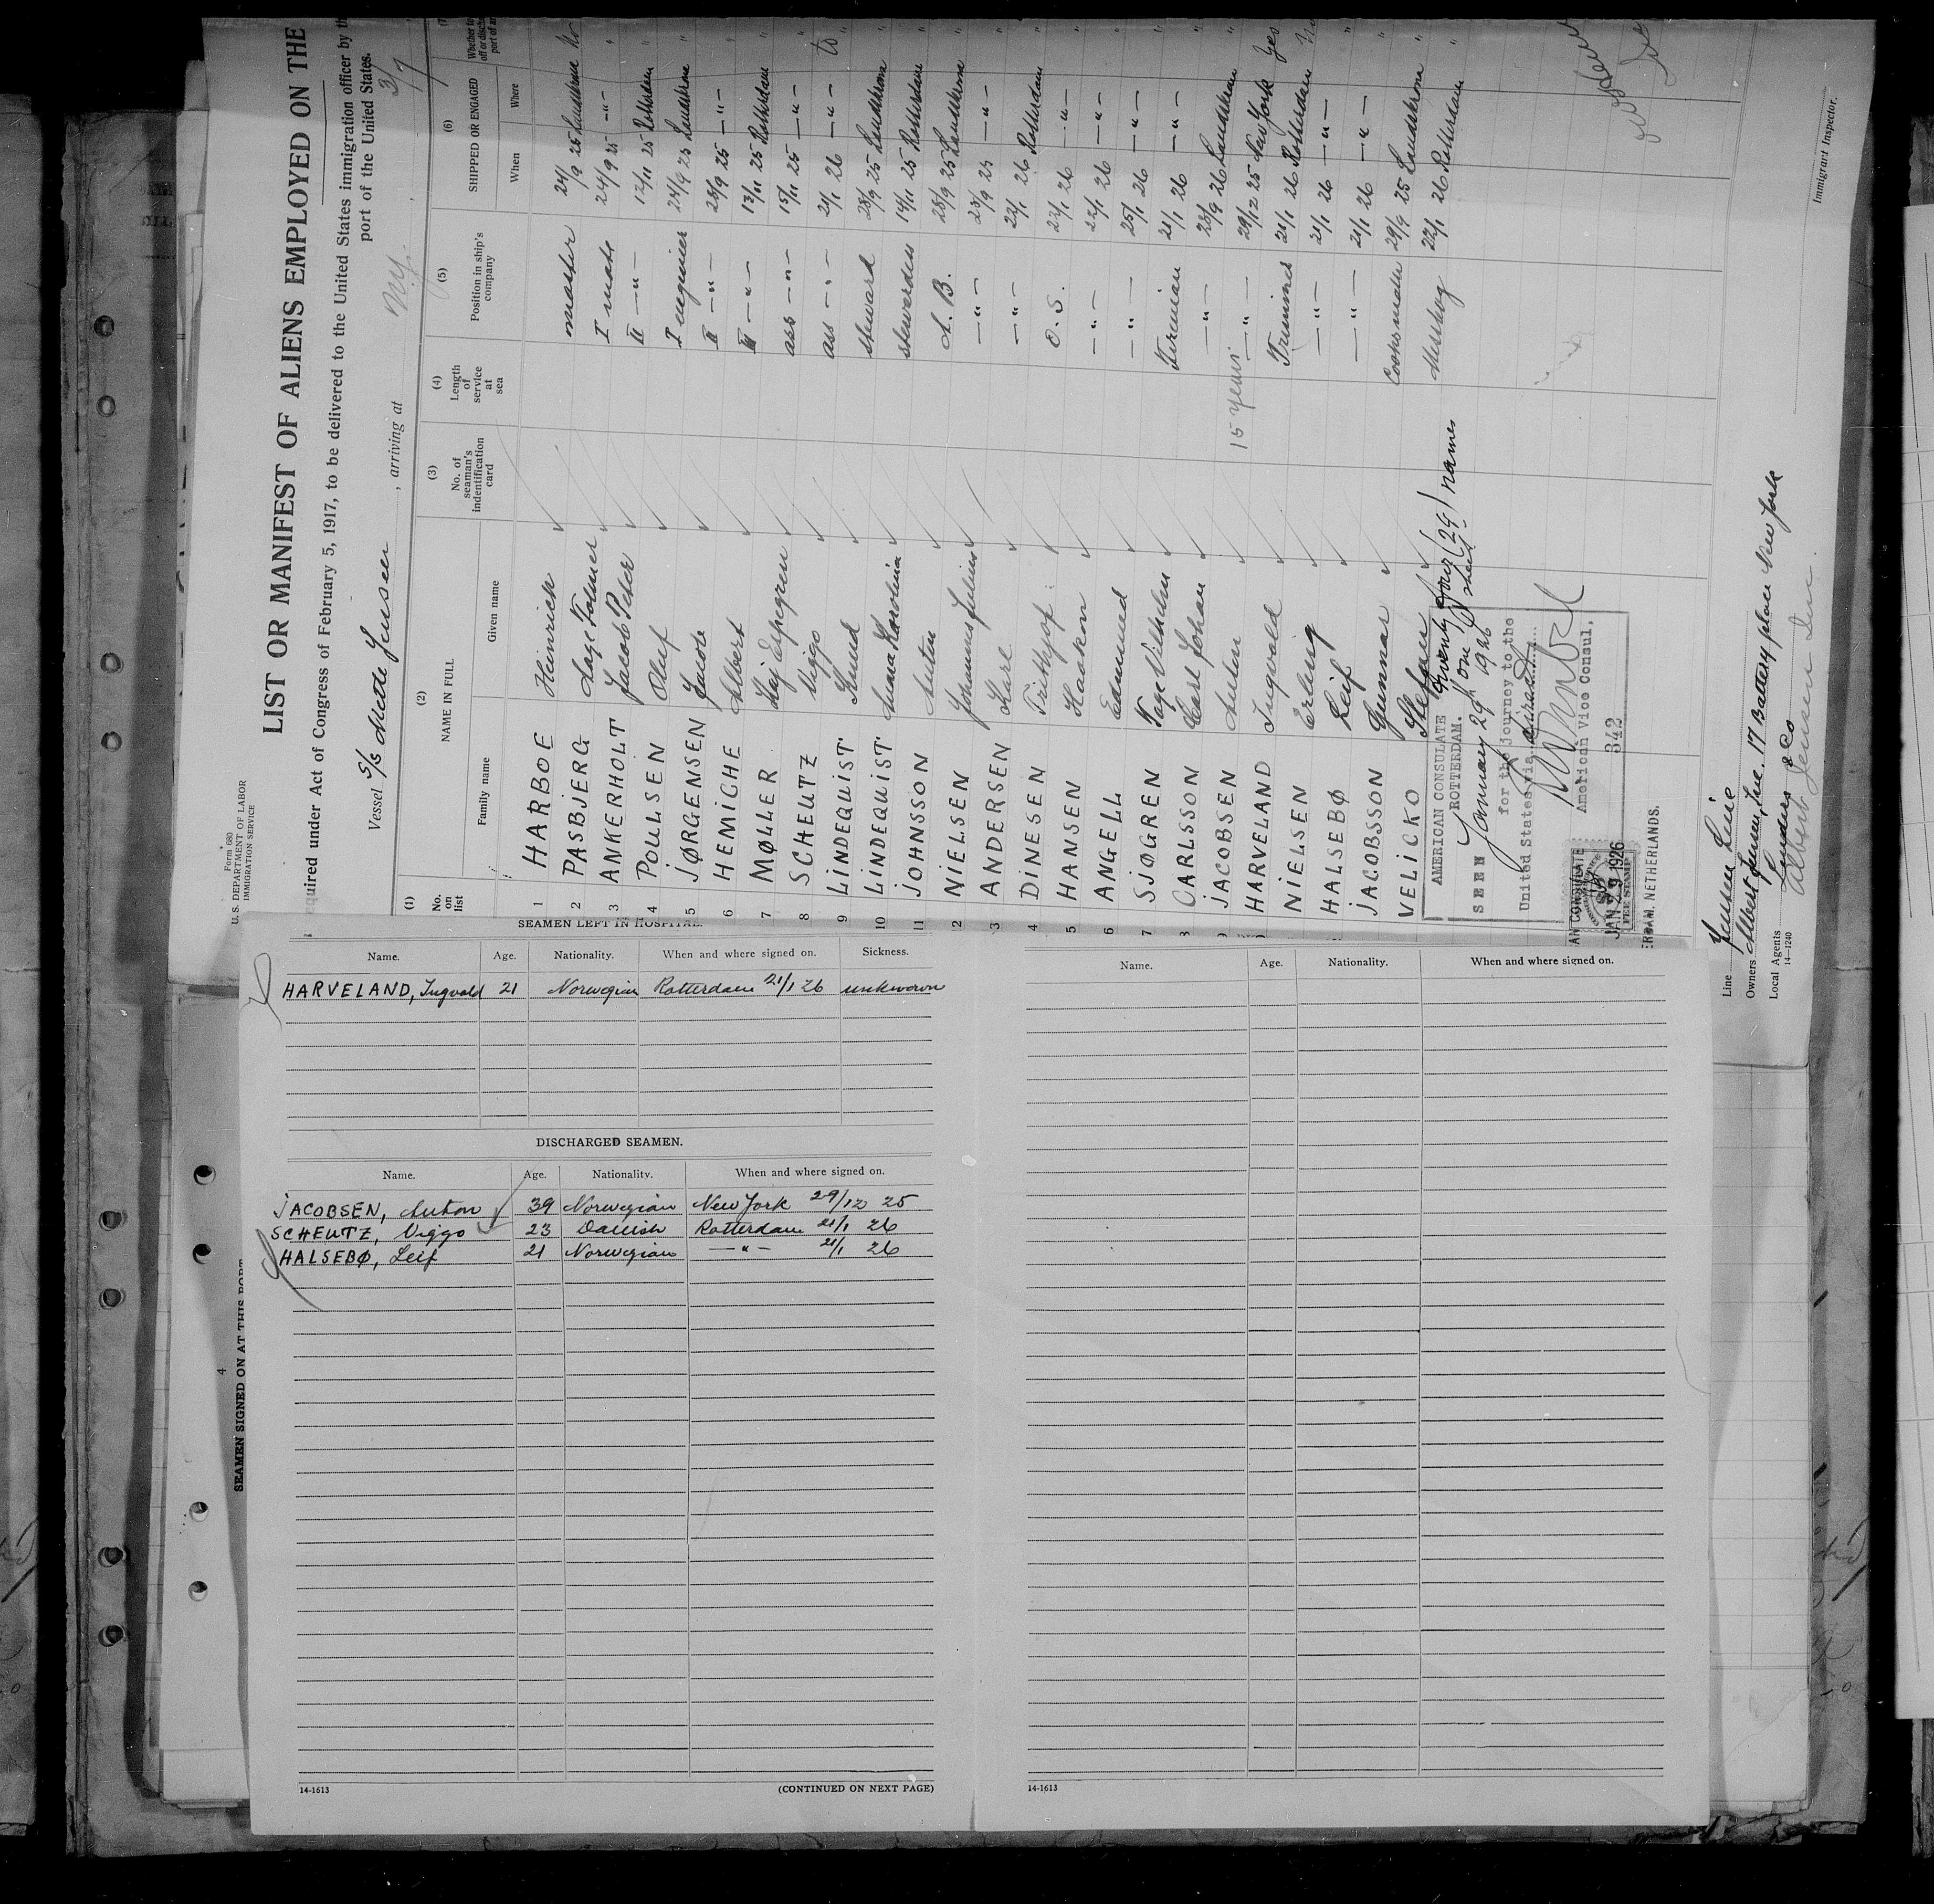 Form 680
U. S. DEPARTMENT OF LABOR
IMMIGRATION SERVICE
LIST OR MANIFEST OF ALIENS EMPLOYED ON THE
equired under Act of Congress of February 5, 1917, to be delivered to the United States immigration officer by th
port of the United States.
Vessel S/S Mette Jensen , arriving at N.Y. 3/7
(1) (2) (3) (4) (5) (6)
No. on list NAME IN FULL No. of seaman's indentification card Length of service at sea Position in ship's company SHIPPED OR ENGAGED
Family name Given name When Where
1 HARBOE Heinrich master 24/9 25 Landskrona No
2 PASBJERG Aage Folmer I mate 24/9 25 —"—
3 ANKERHOLT Jacob Peter II —"— 12/11 25 Rotterdam
4 POULSEN Oluf I engineer 24/9 25 Landskrona
5 JØRGENSEN Jacob II —"— 25/9 25 —"—
6 HEMICHE Albert III —"— 13/11 25 Rotterdam
7 MØLLER Kaj Espegren ass —"— 15/11 25 —"—
8 SCHEUTZ Viggo ass —"— 21/1 26 —"—
9 LINDEQUIST Knud steward 25/9 25 Landskrona
10 LINDEQUIST Anna Karolina stewardess 14/11 25 Rotterdam
11 JOHNSSON Anton A. B. 25/9 25 Landskrona
2 NIELSEN Johannes Julius —"— 25/9 25 —"—
3 ANDERSEN Karl —"— 22/1 26 Rotterdam
4 DINESEN Frithjof O. S. 22/1 26 —"—
5 HANSEN Haakon —"— 22/1 26 —"—
6 ANGELL Edmund —"— 25/1 26 —"—
7 SJØGREN Tage Vilhelm Fireman 21/1 26 —"—
8 CARLSSON Carl Johan —"— 25/9 26 Landskrona
9 JACOBSEN Anton 15 years —"— 29/12 25 New York Yes
HARVELAND Ingvald Trimmer 21/1 26 Rotterdam No
NIELSEN Erling —"— 21/1 26 —"—
HALSEBØ Leif —"— 21/1 26 —"—
JACOBSSON Gunnar Cooksmate 29/9 25 Landskrona
VELICKO Stefan Messboy 22/1 26 Rotterdam
AMERICAN CONSULATE
ROTTERDAM.
Twenty four (24) names
one sheet
SEEN January 29th 1926
for the journey to the
United States via direct
American Vice Consul.
342
AN CONSULATE
JAN 29 1926
FEE STAMP
ERDAM, NETHERLANDS.
Line Jensen Line
Owners Albert Jensen, Inc. 17 Battery place New York
Local Agents & Co
Albert Jensen Inc.
14—1240
Immigrant Inspector.
SEAMEN LEFT IN HOSPITAL.
Name. Age. Nationality. When and where signed on. Sickness.
HARVELAND, Ingvald 21 Norwegian Rotterdam 21/1 26 unknown
DISCHARGED SEAMEN.
Name. Age. Nationality. When and where signed on.
JACOBSEN, Anton 39 Norwegian New York 29/12 25
SCHEUTZ, Viggo 23 Danish Rotterdam 21/1 26
HALSEBØ, Leif 21 Norwegian —"— 21/1 26
14-1613 (CONTINUED ON NEXT PAGE)
4
SEAMEN SIGNED ON AT THIS PORT
Name. Age. Nationality. When and where signed on.
14-1613